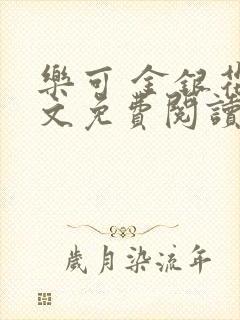 樂可 金銀花
文免費閱讀
歲月染流年